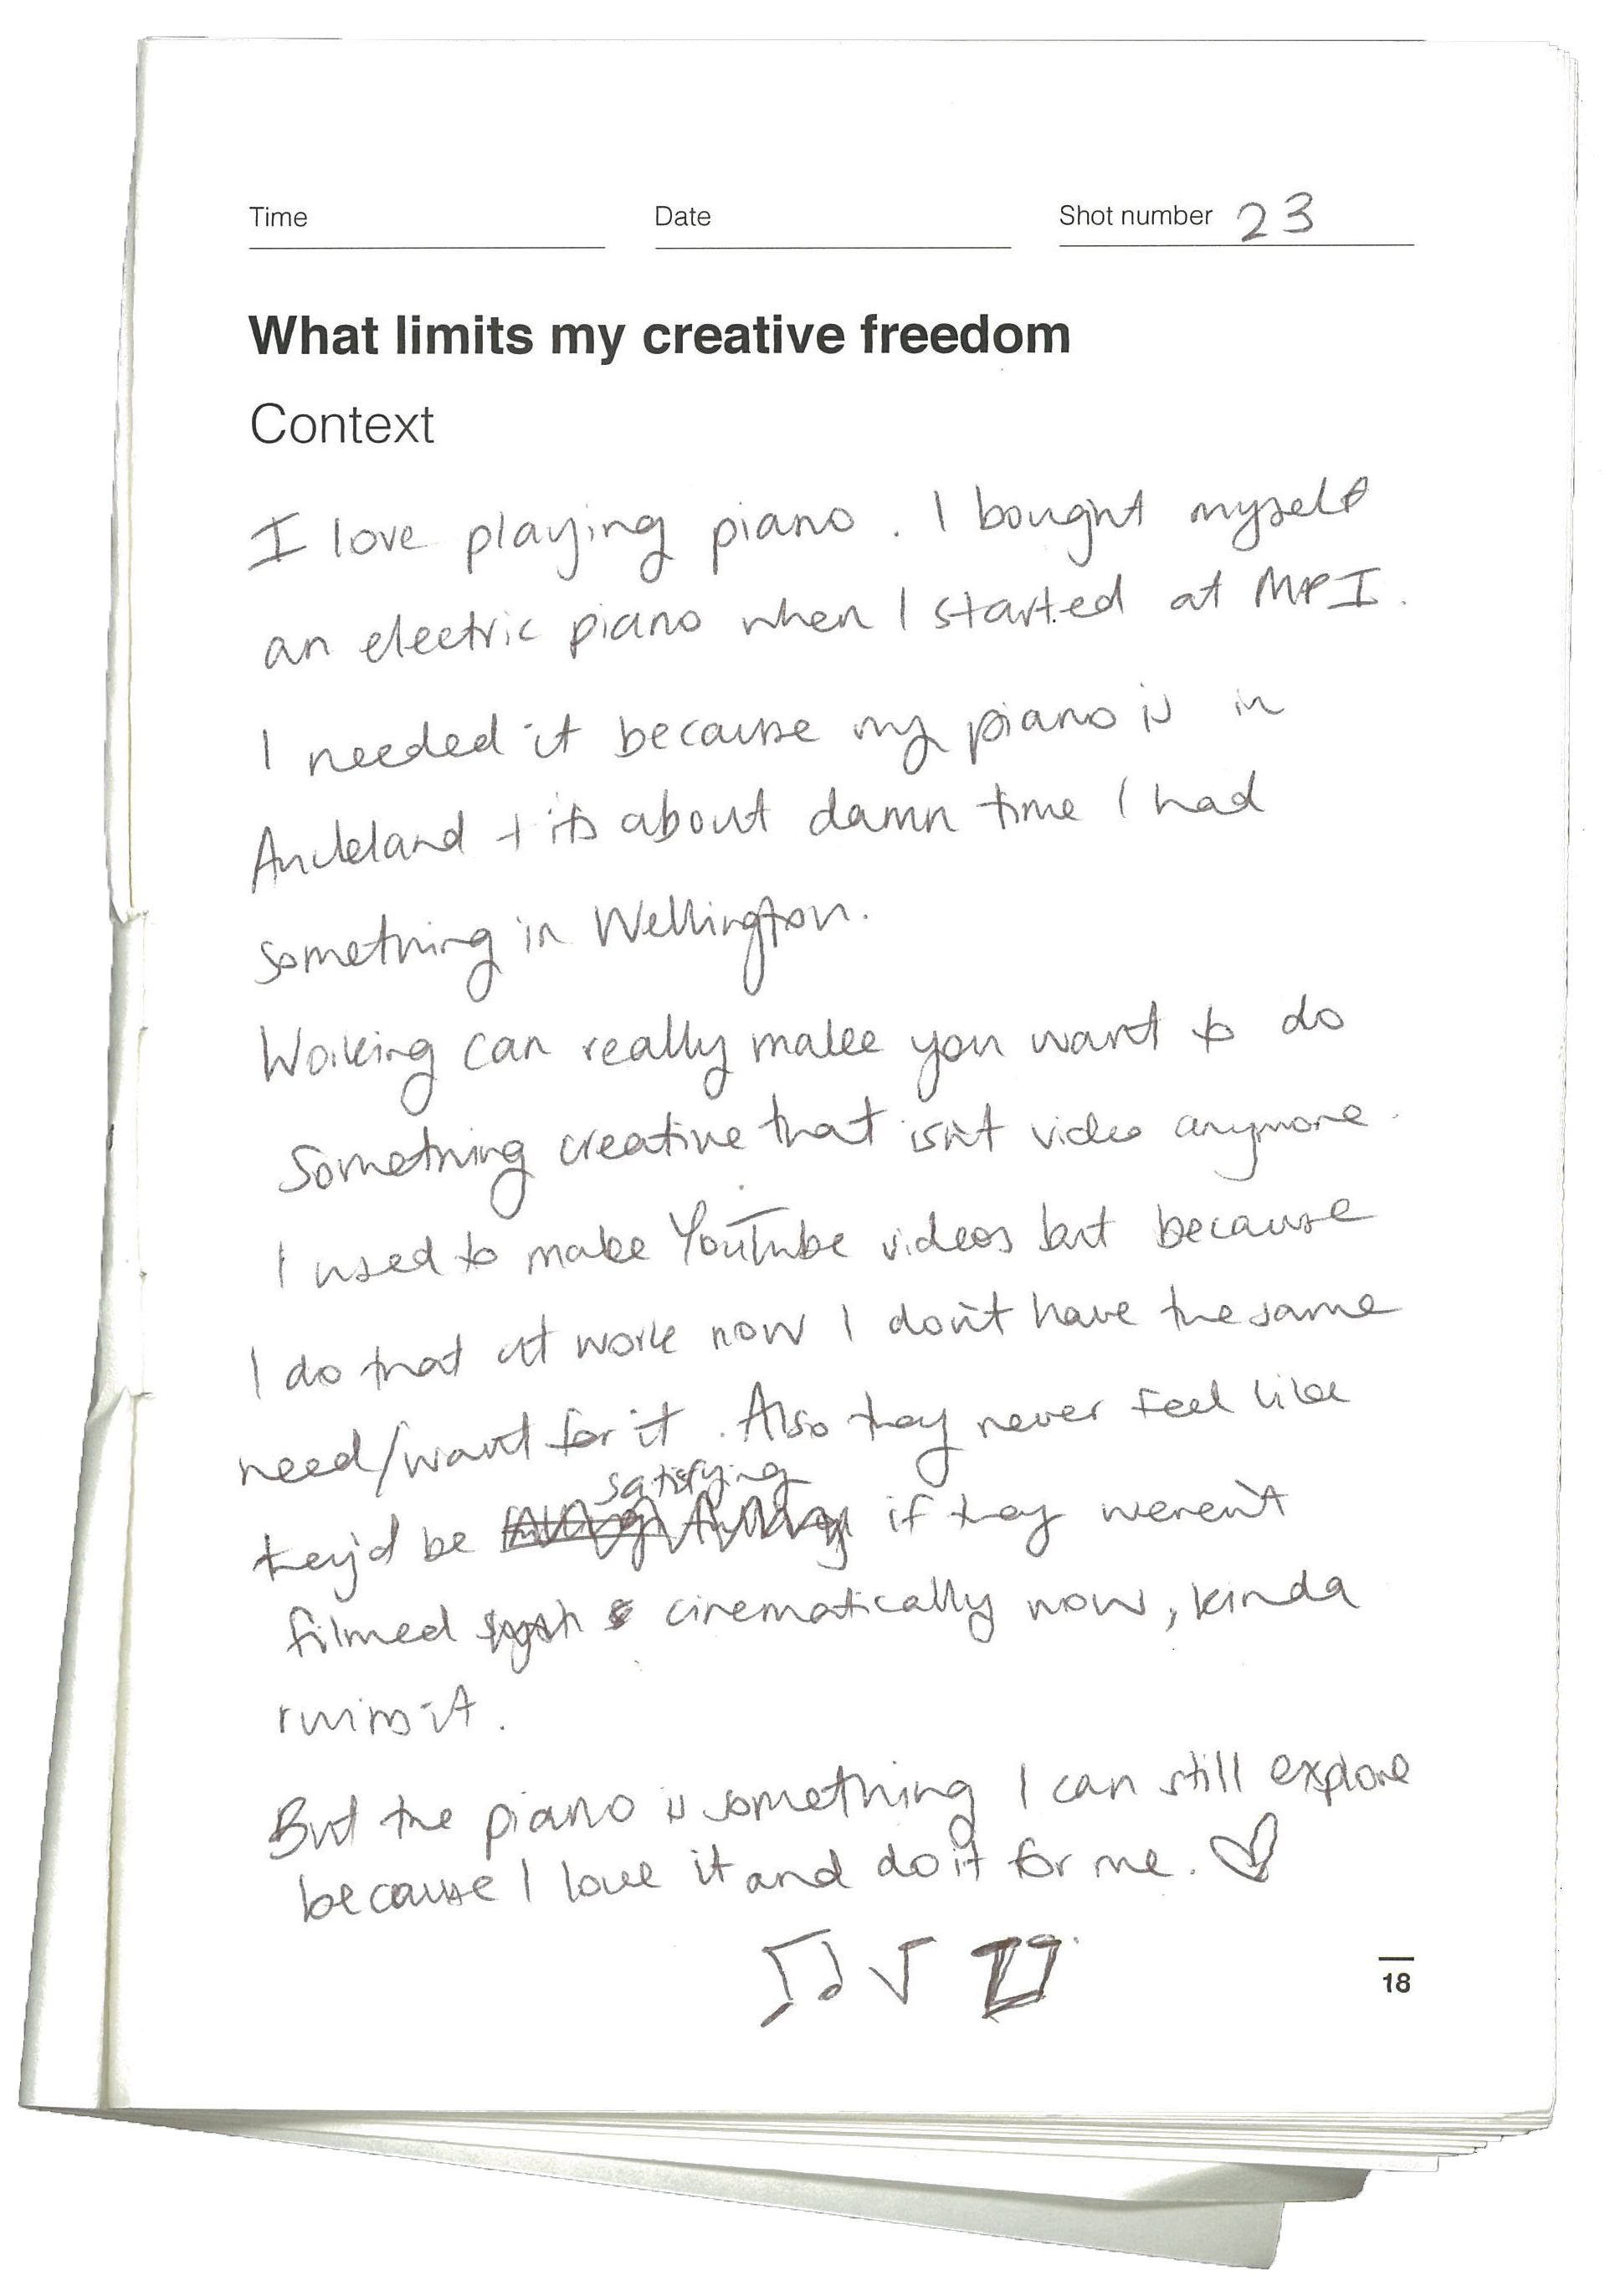 Time Date Shot number 23
What limits my creative freedom
Context
I love playing piano. I bought myself
an electric piano when I started at MPI.
I needed it because my piano is in
Auckland + its about damn time I had
something in Wellington.
Working can really make you want to do
something creative that isn't video anymore.
I used to make YouTube videos but because
I do that at work now I don't have the same
need/want for it. Also they never feel like
satisfying
they'd be if they weren't
filmed cinematically now, kinda
ruins it.
But the piano is something I can still explore
because I love it and do it for me.
18